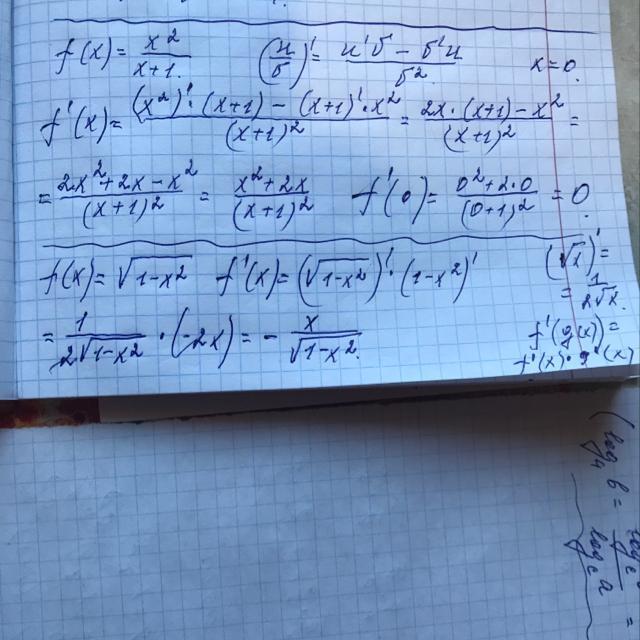 f(x) = x²/(x+1) (u/v)' = (u'v − v'u)/v² x=0.
f'(x) = ((x²)'·(x+1) − (x+1)'·x²)/(x+1)² = (2x·(x+1) − x²)/(x+1)² =
= (2x²+2x−x²)/(x+1)² = (x²+2x)/(x+1)² f'(0) = (0²+2·0)/(0+1)² = 0.
f(x) = √(1−x²) f'(x) = (√(1−x²))'·(1−x²)' (√x)' =
= 1/(2√x).
= 1/(2√(1−x²)) · (−2x) = − x/√(1−x²).
f'(g(x)) =
f'(x)·g'(x)